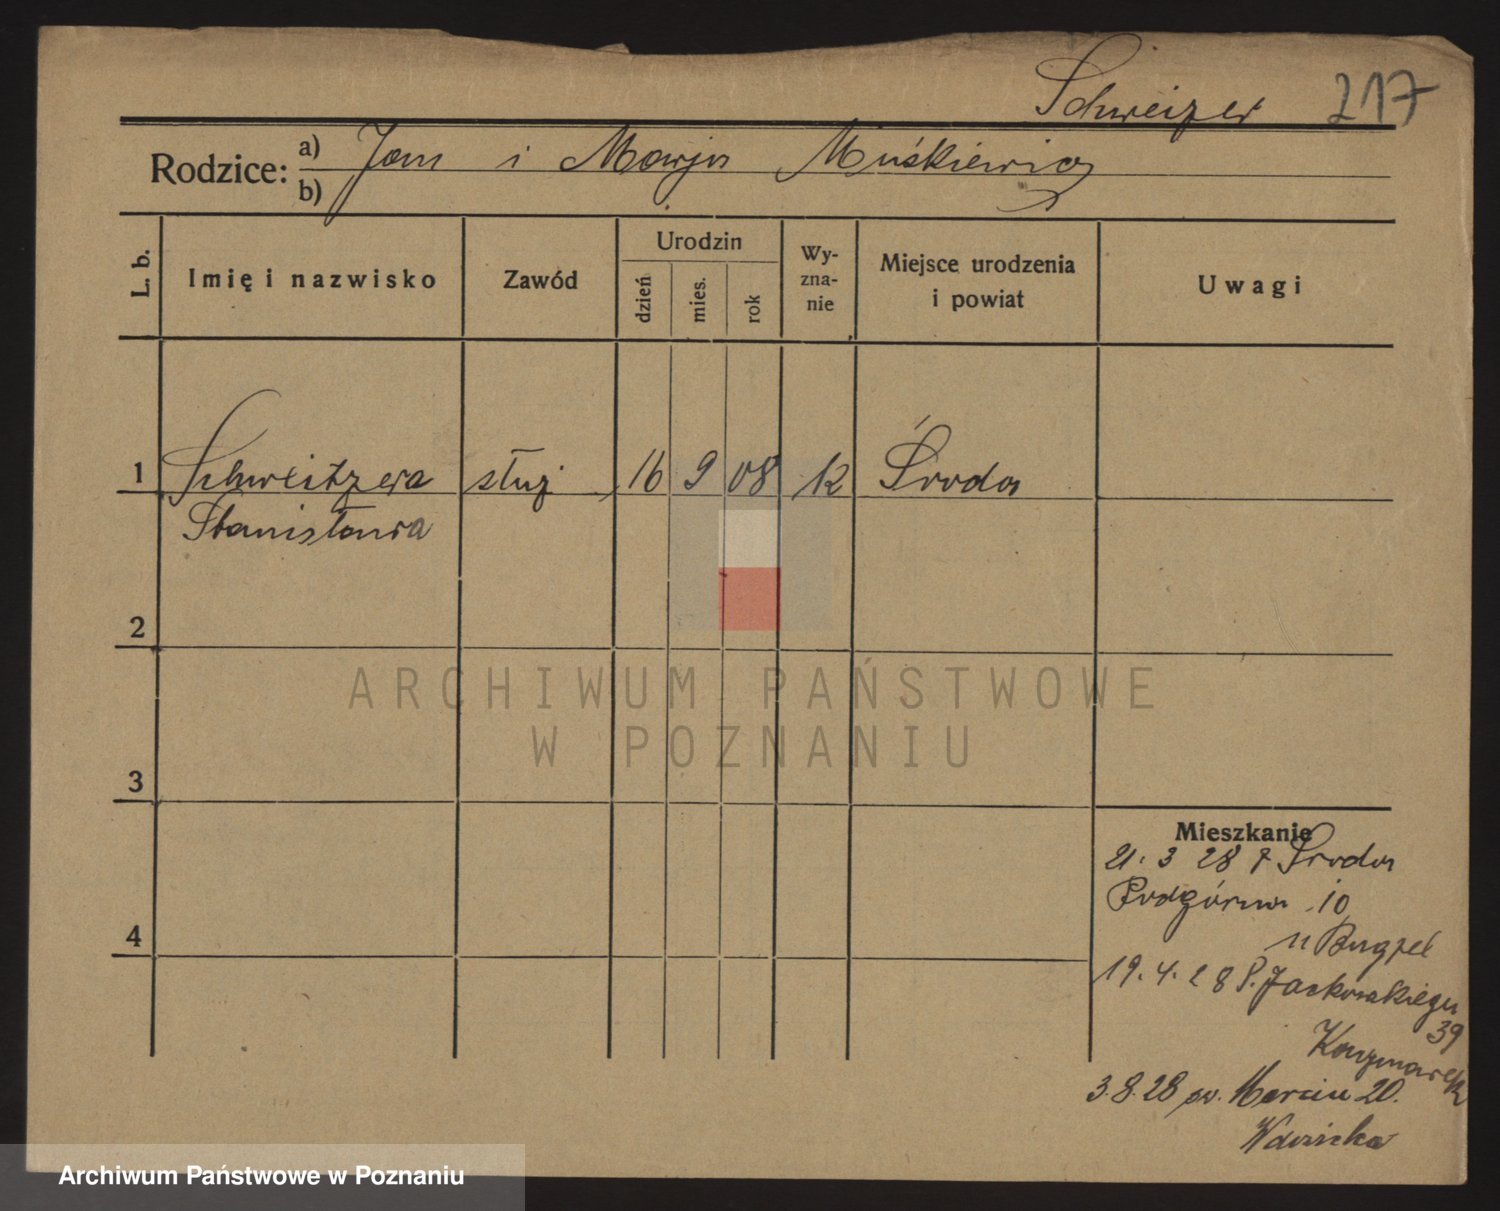 Schweizer 217
Rodzice: a) Jan i Marja Muśkiewicz
b)
L. b. Imię i nazwisko Zawód Urodzin dzień mies. rok Wy-zna-nie Miejsce urodzenia i powiat Uwagi
1 Schweitzera służ 16 9 08 k Środa
Stanisława
2
3
4
Mieszkanie
21. 3 28 z Środa
Podgórna 10
u
19. 4. 28 P. Jackowskiego
39
Kaczmarek
3.8.28 św. Marcin 20.
ARCHIWUM PAŃSTWOWE
W POZNANIU
Archiwum Państwowe w Poznaniu